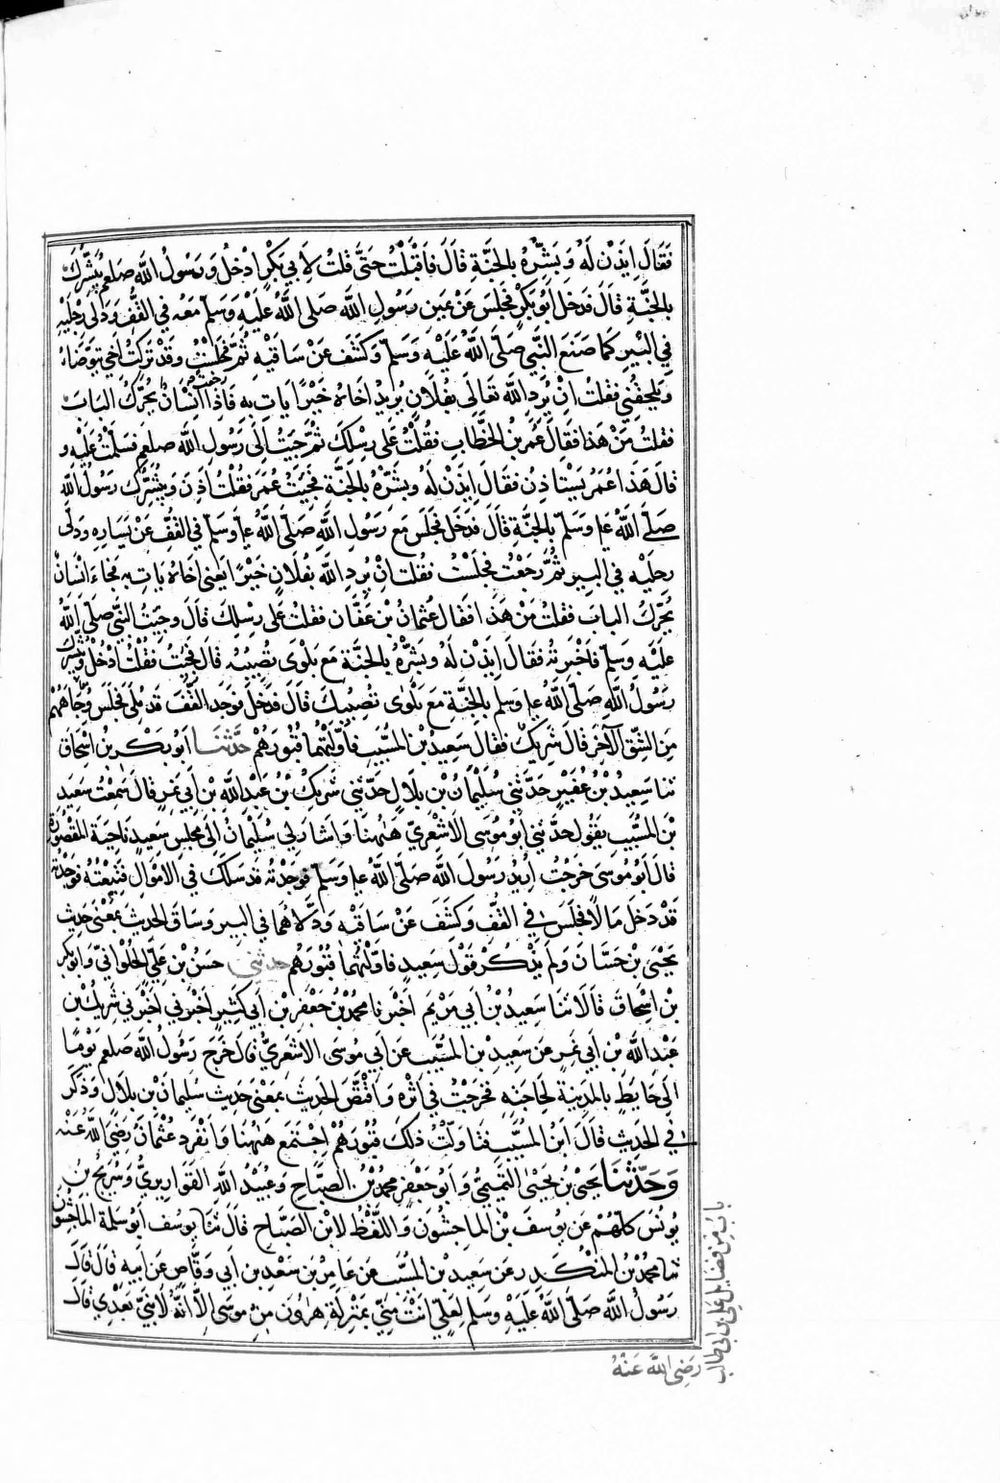 فَقَالَ اِيذَنْ لَهُ وَبَشِّرْهُ بِالجَنَّةِ قَالَ فَاَقْبَلْتُ حَتَّى قُلتُ لِاَبِي بَكْرٍ ادْخُلْ وَرَسُولُ اللَّه صلعم يُبَشِّرُكَ
بِالجَنَّةِ قَالَ فَدَخَلَ اَبُو بَكْرٍ فَجَلَسَ عَنْ يَمِينِ رَسُولِ اللَّه صَلى اللَّهُ عَليْهِ وَسَلّمَ مَعَه في القُفِّ وَدَلَّى رِجْلَيْهِ
فِي البِيْرِ كمَا صَنَعَ النَّبِيّ صَلّى اللَّهُ عَلَيْهِ وَسَلّم وَكَشَفَ عَنْ سَاقَيْهِ ثُمَّ فجَلَسْتُ وَقَدْ تَرَكْتُ اَخِي يَتَوَضّاءُ
وَيَلحَقُنِي فقلتُ اِنْ يُرِدِ اللَّه تعَالَى بفُلَانٍ يُرِيدُ اَخَاهُ خَيْرًا يَاتِ بِه فَاِذَا اِنْسَانٌ يُحَرِّكُ البَابَ
فقلتُ مَنْ هَذَا فَقَالَ عُمَرُ بْنُ الخَطَّابِ فقُلْتُ عَلى رِسْلِكَ ثُمَّ جِيتُ اِلَى رَسُولِ اللَّه صلعم فسَلَّمْتُ عَلَيْهِ وَ
قَالَ هَذَا عُمَرُ يَسْتَاذِنُ فَقَالَ اِيذَنْ لَهُ وَبشِّرْهُ بالجَنَّةِ فجِيتُ عُمَرَ فقُلْتُ اَذِنَ وَيُبَشِّرُكَ رَسُولُ اللَّهِ
صَلَّى اللَّهُ عَلي وَسَلّمَ بِالجَنَّةِ قَالَ فدَخَلَ فجَلَسَ مَعَ رَسُولِ اللَّهِ صَلّى اللَّهُ علي وَسَلّمَ في القُفِّ عَنْ يَسَارِهِ وَدَلَّى
رِجليْهِ في البِيرِ ثُمَّ رَجَعْتُ فجَلَسْتُ فقُلتُ اِنْ يُرِدِ اللَّه بفُلَانٍ خَيْرًا يَعْنِي اَخَاهُ يَاتِ بِه فجَاءَ اِنْسَانٌ
يُحَرِّكُ البابَ فقلتُ مَنْ هَذَا فقَالَ عُثمَانُ بْن عَفَّان فقلتُ عَلى رِسْلِكَ قَالَ وَجِيْتُ النَّبِيَّ صَلَّى اللَّهُ
عَلَيْهِ وَسَلّم فَاَخْبَرتُه فقَالَ اِيذَنْ لَهُ وَبَشِّرْهُ بالجَنَّةِ مَعَ بَلْوَى تُصِيبُهُ قَالَ فجِيْتُ فَقُلْتُ ادْخُلْ وَيُبَشِّرُكَ
رَسُولُ اللَّهِ صَلى اللَّهُ علي وَسَلم بالجَنَّةِ مَعَ بَلْوَى تُصِيبُكَ قَالَ فدَخَلَ فوَجَدَ القُفَّ قَدْ مُلِيَ فجَلَسَ وُجَاهَهُمْ
مِنَ الشِّقِّ الآخَرِ قَالَ شَرِيكٌ فقَالَ سَعِيدُ بْنُ المسَيِّبِ فاَوَّلتُهَا قُبُورَهُمْ حَدَّثَنَا اَبُو بَكْرِ بْنُ اِسْحَاقَ
ثنا سَعِيدُ بْنُ عُفَيْرٍ حَدَّثَنِي سُلَيْمَانُ بْن بِلَالٍ حَدَّثَنِي شَرِيكُ بْنُ عَبْدِ اللَّه بْنِ اَبِي نَمِرٍ قَالَ سَمِعْتُ سَعِيدَ
بْنَ المُسَيِّبِ يَقُولُ حَدَّثَنِي اَبُو مُوسَى الاَشْعَرِيّ هٰهُنَا وَاَشَارَ لِي سُلَيْمَانُ اِلَى مجْلِسِ سَعِيدٍ نَاحِيَةَ المَقْصُورَةِ
قَالَ اَبُو مُوسَى خَرَجْتُ اُرِيدُ رَسُولَ اللَّه صَلّى اللَّهُ علي وَسَلّمَ فوَجَدْتُه قدْ سَلَكَ في الاَمْوَالِ فتَبِعْتُهُ فوَجَدْتُه
قَدْ دَخَلَ مَالًا فجَلَسَ في القُفِّ وَكَشَفَ عَنْ سَاقَيْهِ وَدَلَّاهُمَا في البِيرِ وَسَاقَ الحَدِيثَ بمَعْنَى حَدِيثِ
يَحْيَى بْنِ حَسَّانَ وَلَم يَذْكُرْ قَوْلَ سَعِيدٍ فاَوَّلْتُهَا قُبُورَهُمْ حدثني حَسَنُ بْنُ عَلِيّ الحُلْوَانِيّ وَابُو بَكرِ
بْن اِسْحَاقَ قَالَا ثنَا سَعِيدُ بْنُ اَبِي مَرْيَمَ اَخْبَرنَا محَمَّدُ بْنُ جَعْفَرِ بْنِ اَبِي كَثِيرٍ اَخْبَرَنِي شَرِيكُ بْن
عَبْدِ اللَّه بْنِ اَبِي نَمِرٍ عَنْ سَعِيدِ بْنِ المُسَيَّبِ عَنْ اَبِي مُوسَى الاَشْعَرِيّ قَالَ خَرَجَ رَسُولُ اللَّه صلعم يَوْمًا
اِلَى حَايطٍ بالمَدِينَةِ لِحَاجَتِهِ فخَرَجْتُ في اَثرِهِ وَاقْتَصَّ الحَدِيثَ بمَعْنى حَدِيثِ سُلَيمَانَ بْنِ بِلَالٍ وَذَكَرَ
في الحَدِيثِ قَالَ ابْنُ المُسَيَّبِ فتَاوَلْتُ ذٰلِكَ قُبُورَهُمْ اجْتَمَع هٰهُنَا وَانْفَردَ عُثْمَانُ رَضِيَ اللَّهُ عَنْه
وَحَدَّثَنَا يَحْيَى بْنُ يَحْيَى التَّمِيمِيُّ وَاَبُو جَعْفَرٍ محَمَّدُ بْنُ الصَّبَّاحِ وَعُبَيْدُ اللَّه القَوَارِيرِيُّ وَسُرَيْجُ بْنُ
يُونُسَ كلّهُمْ عَنْ يُوسُفَ بْنِ المَاجِشُونَ وَاللَّفْظُ لِابْنِ الصَّبَّاحِ قَالَ ثَنَا يُوسُفُ اَبُو سَلمَةَ المَاجِشُونُ
ثنا محَمَّدُ بْنُ المُنْكَدِرِ عَنْ سَعِيدِ بْنِ المُسَيَّبِ عَنْ عَامِرِ بْنِ سَعْدِ بْنِ اَبِي وَقَّاصٍ عَنْ اَبِيهِ قَالَ قَالَ
رَسُولُ اللَّه صَلَّى اللَّهُ عَلَيْهِ وَسَلم لِعَلِيّ اَنْتَ مِنِّي بمَنْزِلَةِ هرُونَ مِنْ مُوسَى اِلَّا اَنَّهُ لَا نَبِيَّ بَعْدِي قَالَ
بابٌ مِن فضايل علي بن ابي طالب
رَضِيَ اللَّهُ عَنْهُ